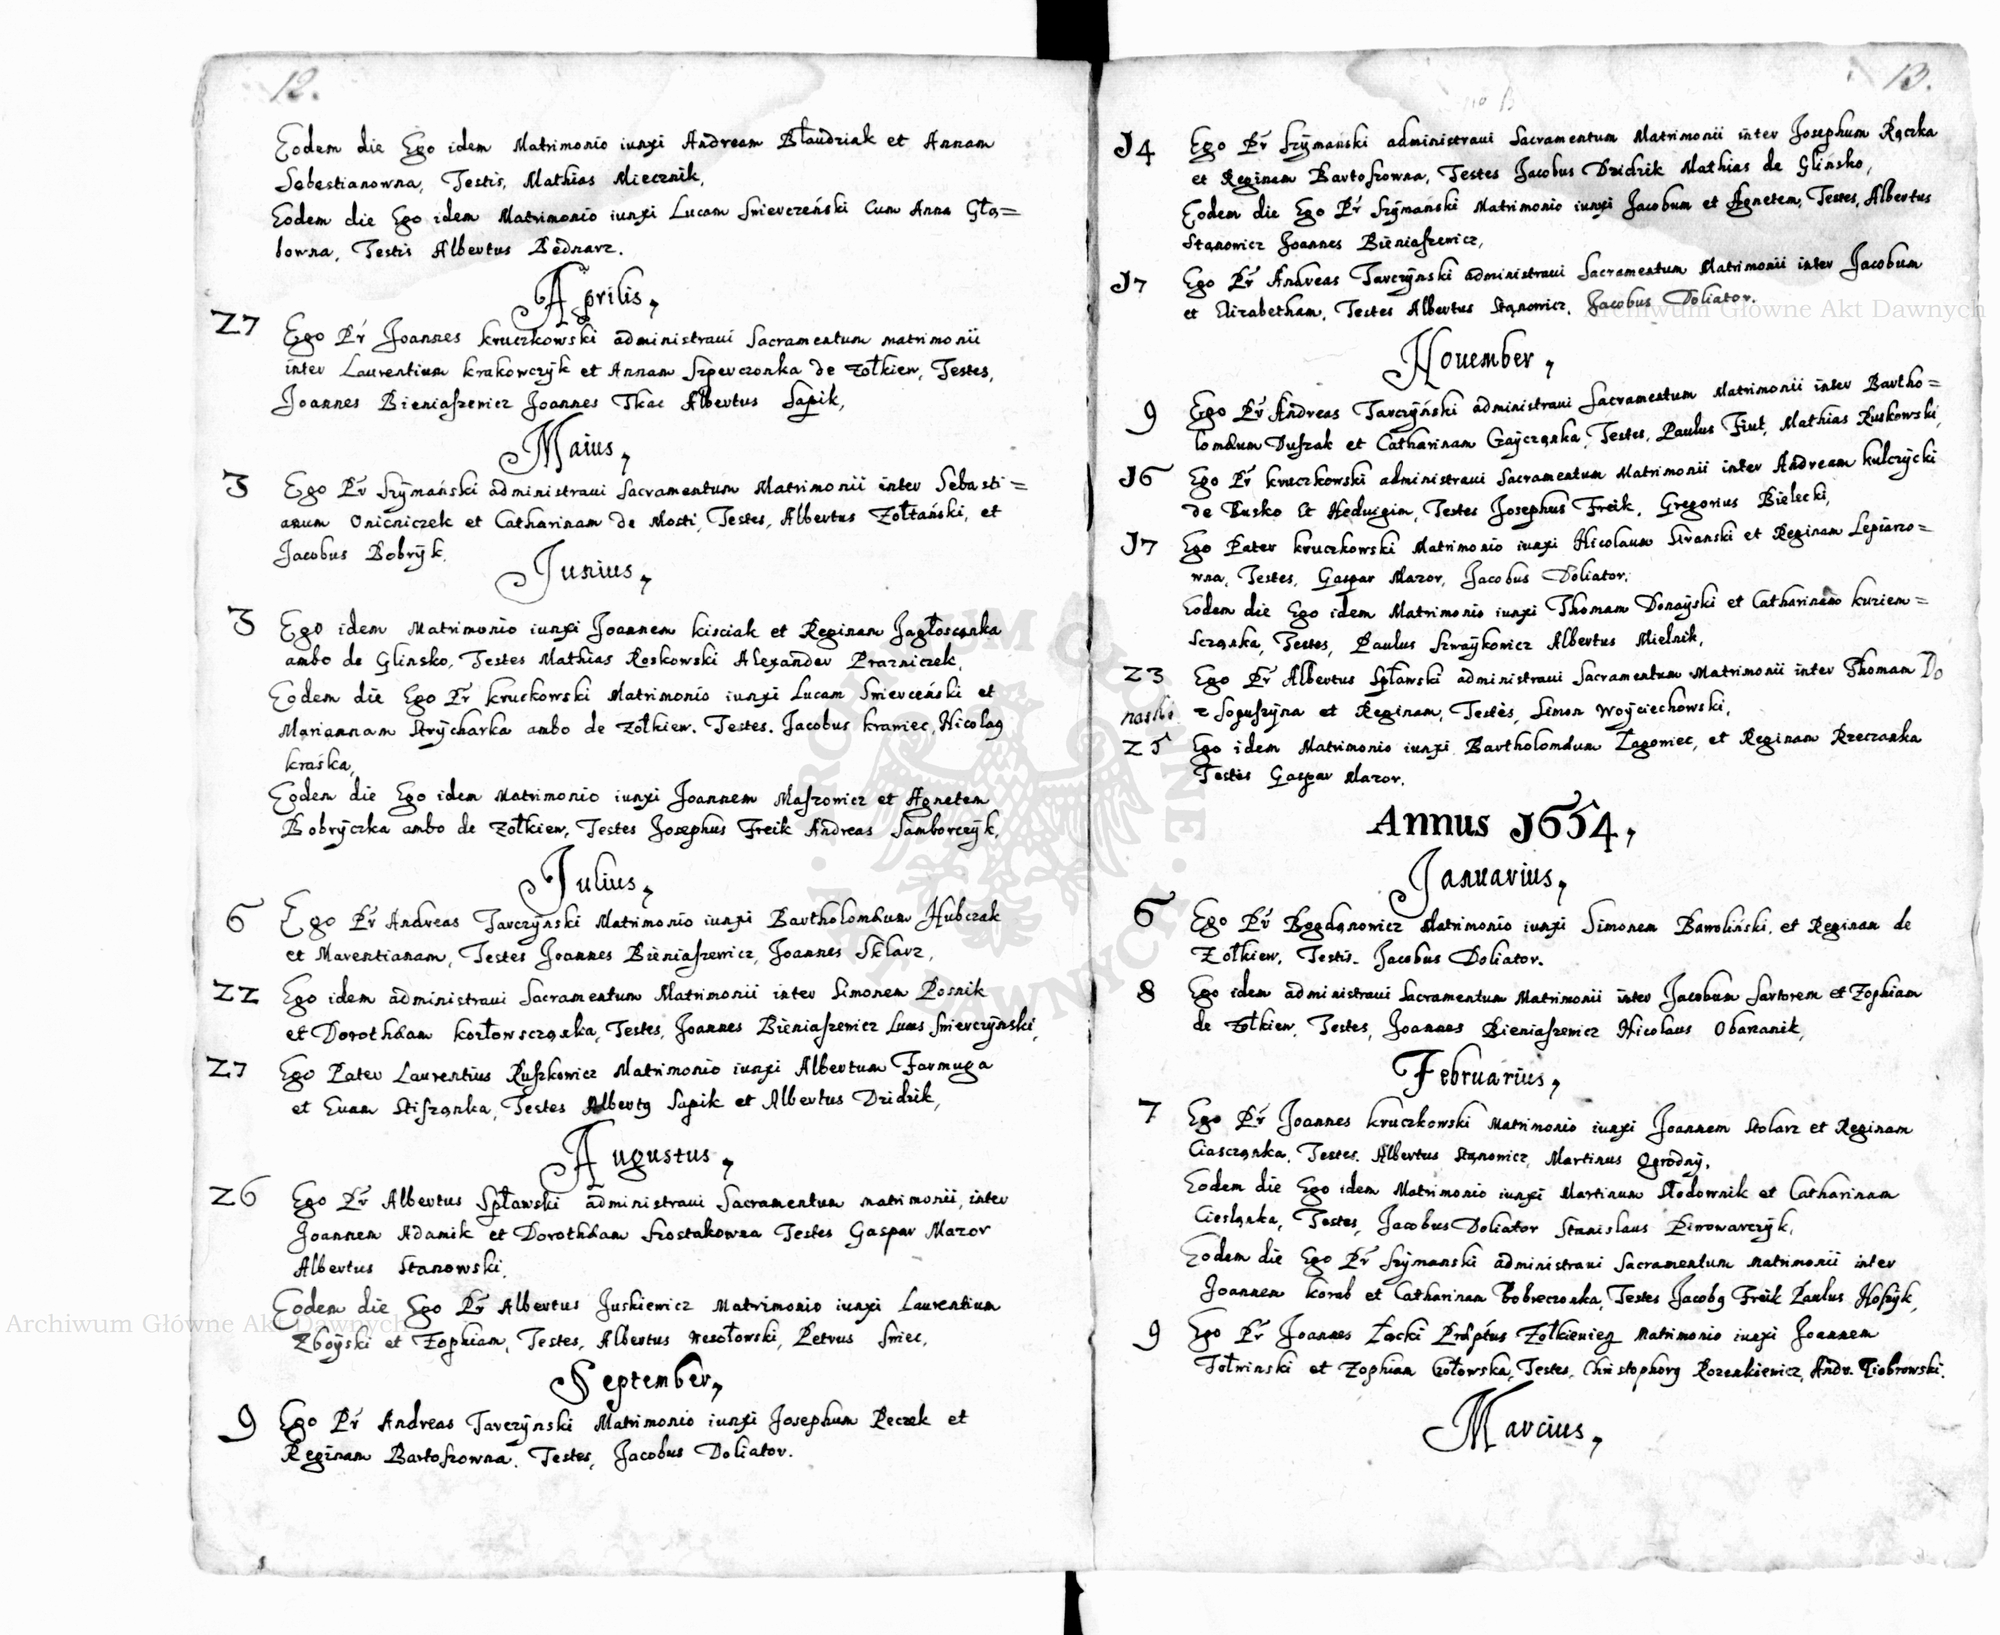 12.
Eodem die Ego idem Matrimonio iunxi Andream Błaudziak et Annam
Sebestianowna, Testis, Mathias Miecznik,
Eodem die Ego idem Matrimonio iunxi Lucam Swierczeński Cum Anna Gła=
bowna, Testis Albertus Bednarz.
Aprilis,
27 Ego Pr Joannes kruczkowski administraui Sacramentum matrimonii
inter Laurentium krakowczÿk et Annam Szperczonka de Zołkiew, Testes,
Joannes Bieniaszewicz Joannes Tkac Albertus Sapik,
Maius,
3 Ego Pr Szÿmański administraui Sacramentum Matrimonii inter Sebasti=
anum Onicniczek et Catharinam de Mosti, Testes, Albertus Zołtański, et
Jacobus Bobrÿk.
Junius,
3 Ego idem Matrimonio iunxi Joannem kisciak et Reginam Jagłosconka
ambo de Glinsko, Testes Mathias Roskowski Alexander Prazniczek,
Eodem die Ego Pr kruckowski Matrimonio iunxi Lucam Swierceński et
Mariannam Strÿcharka ambo de Zołkiew. Testes. Jacobus krawiec, Nicolaq
kraśka,
Eodem die Ego idem Matrimonio iunxi Joannem Maszowicz et Agnetem
Bobrÿczka ambo de Zołkiew, Testes Josephus Freik Andreas Samborczÿk,
Julius,
6 Ego Pr Andreas Tarczÿnski Matrimonio iunxi Bartholomæum Hubczak
et Marentianam, Testes Joannes Bieniaszewicz, Joannes Sklarz,
22 Ego idem administraui Sacramentum Matrimonii inter Simonem Posnik
et Dorothæam korłowscząnka, Testes, Joannes Bieniaszewicz Lucas Swierczÿnski,
27 Ego Pater Laurentius Ruszkowicz Matrimonio iunxi Albertum Farmuga
et Euam Stisząnka, Testes Albertq Sapik et Albertus Dzidzik,
Augustus,
26 Ego Pr Albertus Spławski administraui Sacramentum matrimonii, inter
Joannem Adamik et Dorothæam Szostakowna Testes Gaspar Mazor
Albertus Stanowski,
Eodem die Ego Pr Albertus Juskiewicz Matrimonio iunxi Laurentium
Zboÿski et Zophiam, Testes, Albertus Wesołowski, Petrus Swiec,
September,
9 Ego Pr Andreas Tarczÿnski Matrimonio iunxi Josephum Reczek et
Reginam Bartoszowna. Testes, Jacobus Doliator.
13.
14 Ego Pr Szÿmański administraui Sacramentum Matrimonii inter Josephum Rączka
et Reginam Bartoszowna, Testes Jacobus Dzidzik Mathias de Glinsko,
Eodem die Ego Pr Szÿmański Matrimonio iunxi Jacobum et Agnetem, Testes, Albertus
Stąnowicz Joannes Bieniaszewicz,
17 Ego Pr Andreas Tarczÿnski administraui Sacramentum Matrimonii inter Jacobum
et Elizabetham, Testes Albertus Stąnowicz, Jacobus Doliator.
November,
9 Ego Pr Andreas Tarczÿński administraui Sacramentum Matrimonii inter Bartho=
lomæum Duszak et Catharinam Gaÿcząnka, Testes, Paulus Fiut, Mathias Ruskowski,
16 Ego Pr kruczkowski administraui Sacramentum Matrimonii inter Andream kulczÿcki
de Busko Et Heduigim, Testes Josephus Freik, Gregorius Bielecki,
17 Ego Pater kruczkowski Matrimonio iunxi Nicolaum Siranski et Reginam Lepiarzo=
wna, Testes, Gaspar Mazor, Jacobus Doliator.
Eodem die Ego idem Matrimonio iunxi Thomam Donaÿski et Catharinam kuziem=
Scząnka, Testes, Paulus Szwaÿkowicz Albertus Mielnik,
23 Ego Pr Albertus Spławski administraui Sacramentum Matrimonii inter Thomam Do
naski z Soguszÿna et Reginam, Testes, Simon Woÿciechowski,
25 Ego idem Matrimonio iunxi Bartholomæum Zagowiec, et Reginam Rzeczanka
Testes Gaspar Mazor.
Annus 1654,
Januarius,
6 Ego Pr Bogdąnowicz Matrimonio iunxi Simonem Bawoliński, et Reginam de
Zołkiew, Testis. Jacobus Doliator.
8 Ego idem administraui Sacramentum Matrimonii inter Jacobum Sartorem et Zophiam
de Zołkiew, Testes, Joannes Bieniaszewicz Nicolaus Obazanik,
Februarius,
7 Ego Pr Joannes kruczkowski Matrimonio iunxi Joannem Stolarz et Reginam
Ciascząnka, Testes. Albertus Stąnowicz, Martinus Ogrodnÿ,
Eodem die Ego idem Matrimonio iunxi Martinum Słodownik et Catharinam
Ciesląnka, Testes, Jacobus Doliator Stanislaus Piwowarczÿk,
Eodem die Ego Pr Szÿmanski administraui Sacramentum matrimonii inter
Joannem korab et Catharinam Bobreczonka, Testes Jacobq Freik Paulus Hosÿk,
9 Ego Pr Joannes Łącki Præptus Zołkieuien Matrimonio iunxi Joannem
Tołwinski et Zophiam Gołowska, Testes, Christophorq Rozenkiewicz, Andr. Ciobrowski.
Marcius,
Archiwum Główne Akt Dawnych
Archiwum Główne Akt Dawnych
ARCHIWUM GŁÓWNE AKT DAWNYCH